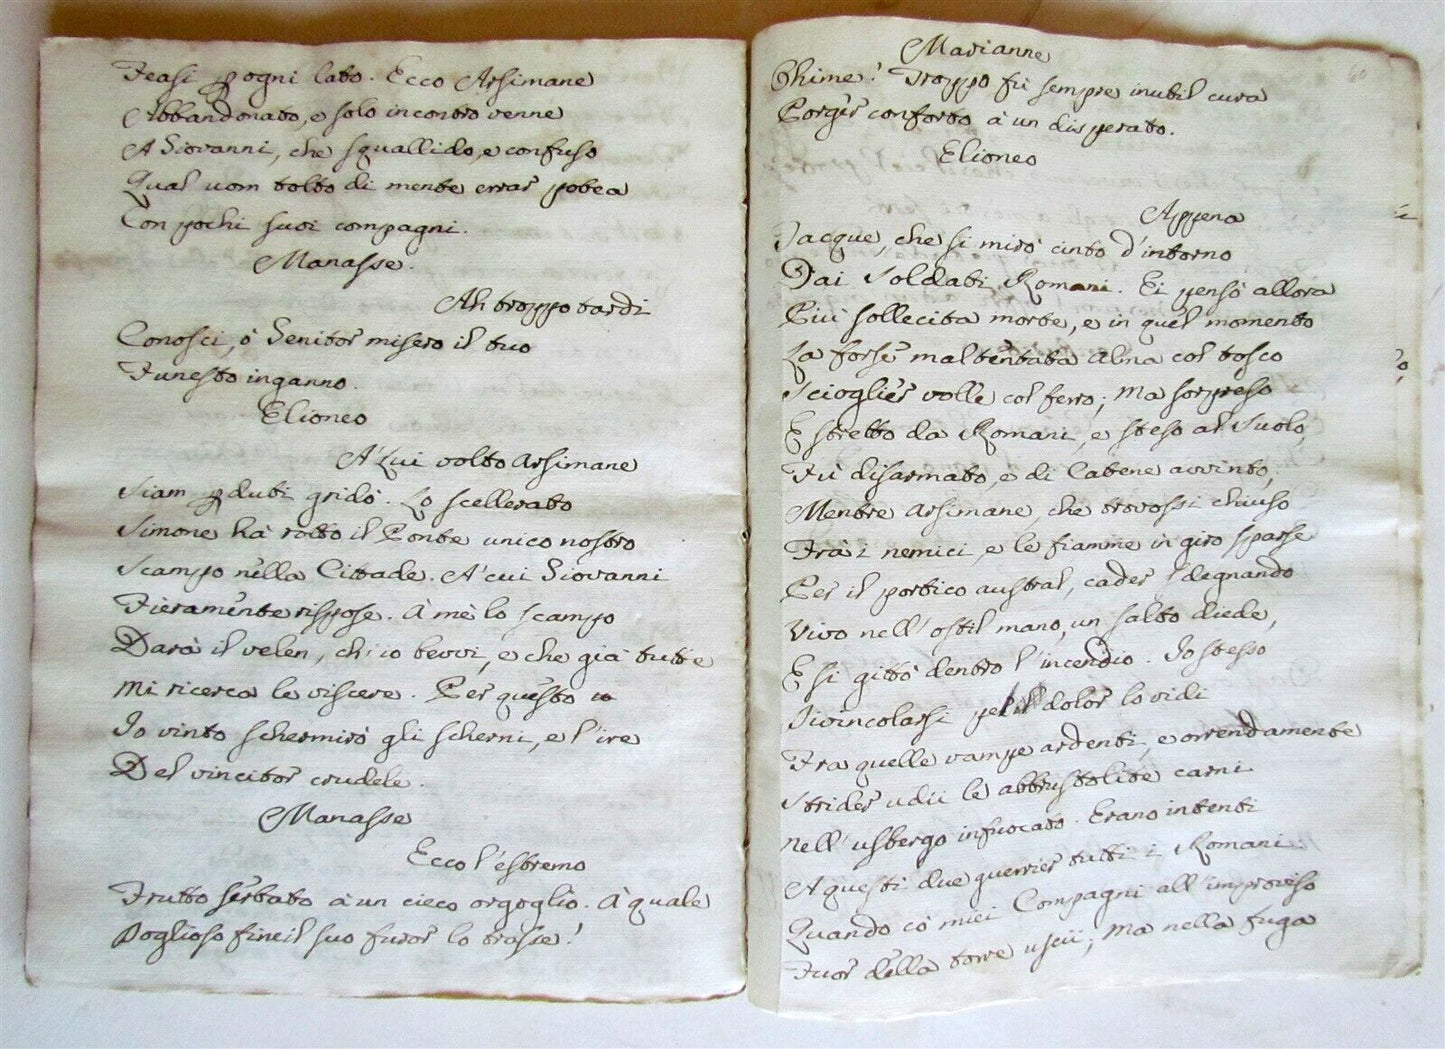 Feasi p ogni lato. Ecco Arsimane
Abbandonato, e solo incontro venne
A Giovanni, che squallido, e confuso
Qual uom tolto di mente errar potea
Con pochi suoi compagni.
Manasse.
Ah troppo tardi
Conosci, ò Genitor misero il tuo
Funesto inganno.
Elioneo
A Lui volto Arsimane
Siam pduti gridò. Lo scellerato
Simone hà rotto il Ponte unico nostro
Scampo nella Cittade. A' cui Giovanni
Fieramente rispose. A mè lo scampo
Darà il velen, ch' io bevvi, e che già tutte
Mi ricerca le viscere. Per questo
Io vinto schermirò gli scherni, e l'ire
Del vincitor crudele.
Manasse
Ecco l'estremo
Frutto serbato à un cieco orgoglio. A quale
Doglioso fine il suo furor lo trasse!
60
Marianne
Ohime! Troppo fù sempre inutil cura
Porger conforto à un disperato.
Elioneo
Appena
Jacque, che si mirò cinto d'intorno
Dai Soldati Romani. Ei pensò allora
Più sollecita morte, e in quel momento
La forse mal tentata alma col tosco
Scioglier volle col ferro; Ma sorpreso
E stretto da Romani, e steso al Suolo,
Fù disarmato, e di Catene avvinto,
Mentre Arsimane, che trovossi chiuso
Frà i nemici, e le fiamme in giro sparse
Per il portico austral, cader sdegnando
Vivo nell' ostil mano, un salto diede,
E si gittò dentro l'incendio. Io stesso
Divincolarsi pel dolor lo vidi
Fra quelle vampe ardenti, e orrendamente
Strider udii le abbrustolite carni
Nell' usbergo infuocato. Erano intenti
A questi due guerrier tutti i Romani
Quando co' miei Compagni all' improviso
Fuor della torre uscii; Ma nella fuga